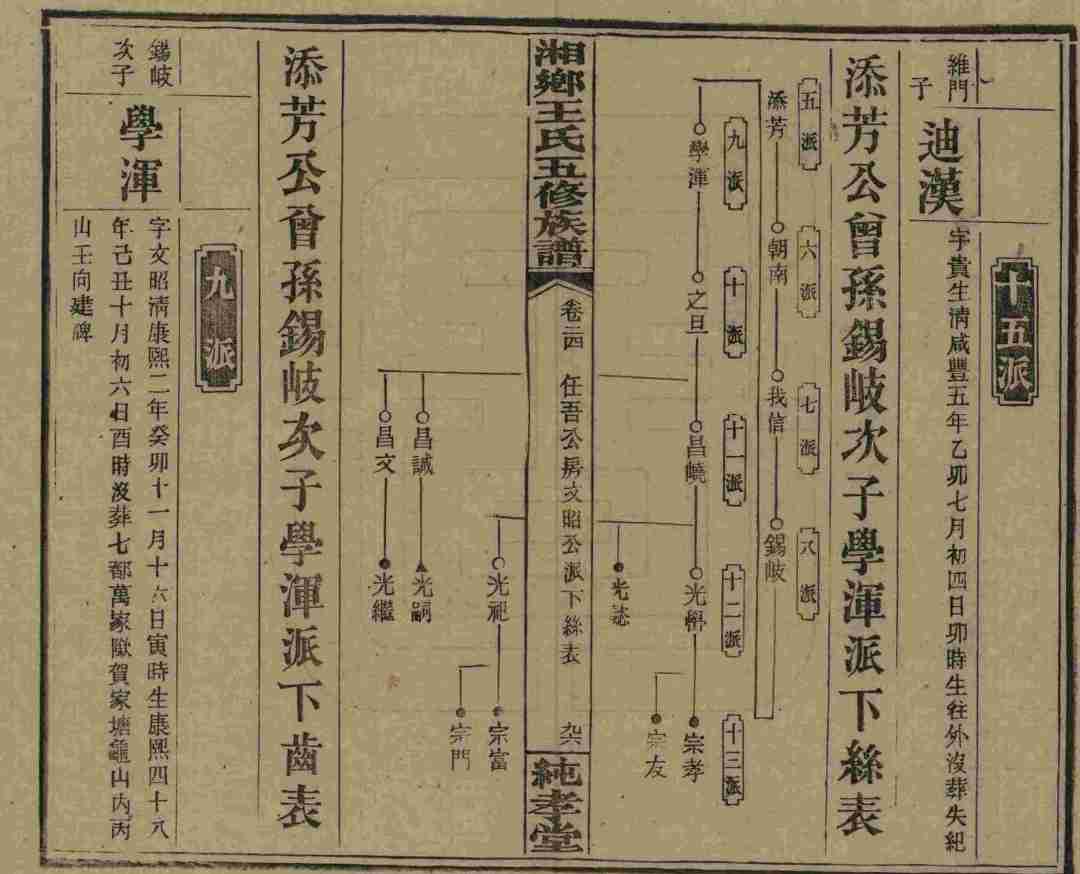 十五派
維門
子
迪漢
字貴生清咸豐五年乙卯七月初四日卯時生往外沒葬失紀
添芳公曾孫錫岐次子學渾派下絲表
五派
六派
七派
八派
添芳
朝南
我信
錫岐
九派
十派
十一派
十二派
十三派
學渾
之旦
昌曉
宗孝
宗友
湘鄉王氏五修族譜
卷二四
任吾公房文昭公派下絲表
純孝堂
光祀
宗富
宗門
昌誠
光嗣
昌文
光繼
添芳公曾孫錫岐次子學渾派下齒表
九派
錫岐
次子
學渾
字文昭清康熙二年癸卯十一月十六日寅時生康熙四十八
年己丑十月初六日酉時沒葬七都萬家賀家塘山內丙
山壬向建碑